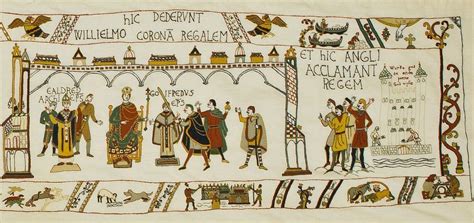 hIC DEDERVNT
WILLIELMO CORONĀ REGALEM
EALDRED
ARCHIEPS
GOSFREDVS
EPS
ET hIC ANGLI
ACCLAMANT
REGEM